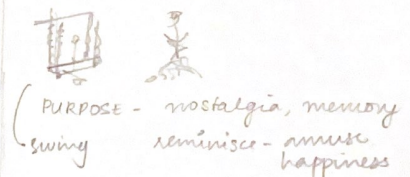 PURPOSE - nostalgia, memory
swing reminisce - amuse
happiness